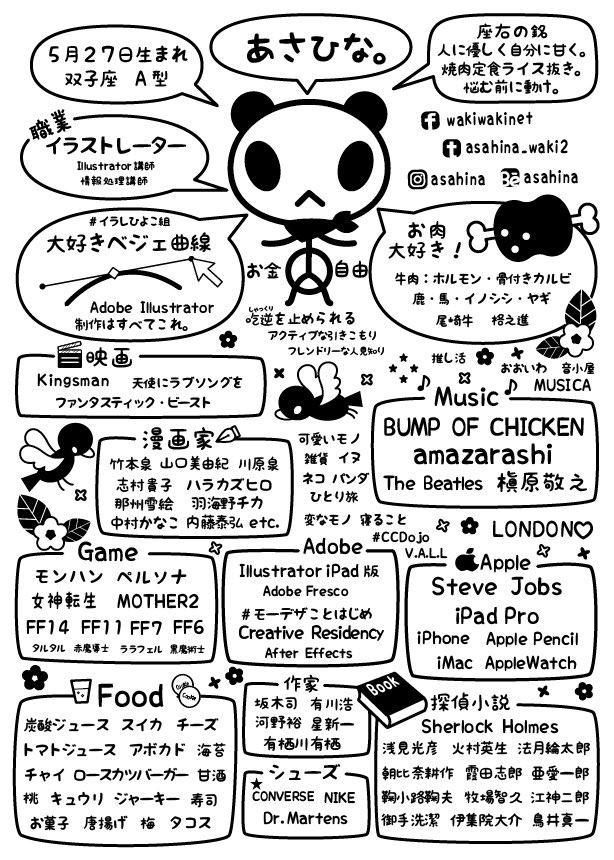 5月27日生まれ
双子座　A型
あさひな。
座右の銘
人に優しく自分に甘く。
焼肉定食ライス抜き。
悩む前に動け。
wakiwakinet
asahina_waki2
asahina
Be asahina
職業
イラストレーター
Illustrator講師
情報処理講師
#イラしひよこ組
大好きベジェ曲線
Adobe Illustrator
制作はすべてこれ。
お金 自由
お肉
大好き！
牛肉：ホルモン・骨付きカルビ
鹿・馬・イノシシ・ヤギ
尾崎牛　格之進
しゃっくり
吃逆を止められる
アクティブな引きこもり
フレンドリーな人見知り
映画
Kingsman　天使にラブソングを
ファンタスティック・ビースト
推し活
おおいわ　音小屋
MUSICA
Music
BUMP OF CHICKEN
amazarashi
The Beatles　槇原敬之
漫画家
竹本泉　山口美由紀　川原泉
志村貴子　ハラカズヒロ
那州雪絵　羽海野チカ
中村かなこ　内藤泰弘 etc.
可愛いモノ
雑貨　イヌ
ネコ　パンダ
ひとり旅
変なモノ　寝ること
#CCDojo
V.A.L.L
LONDON♡
Game
モンハン　ペルソナ
女神転生　MOTHER2
FF14　FF11　FF7　FF6
タルタル　赤魔導士　ララフェル　黒魔術士
Adobe
Illustrator iPad版
Adobe Fresco
#モーデザことはじめ
Creative Residency
After Effects
Apple
Steve Jobs
iPad Pro
iPhone　Apple Pencil
iMac　AppleWatch
Food
炭酸ジュース　スイカ　チーズ
トマトジュース　アボカド　海苔
チャイ　ロースカツバーガー　甘酒
桃　キュウリ　ジャーキー　寿司
お菓子　唐揚げ　梅　タコス
作家
坂木司　有川浩
河野裕　星新一
有栖川有栖
シューズ
CONVERSE　NIKE
Dr.Martens
Book
探偵小説
Sherlock Holmes
浅見光彦　火村英生　法月綸太郎
朝比奈耕作　霞田志郎　亜愛一郎
鞠小路鞠夫　牧場智久　江神二郎
御手洗潔　伊集院大介　鳥井真一